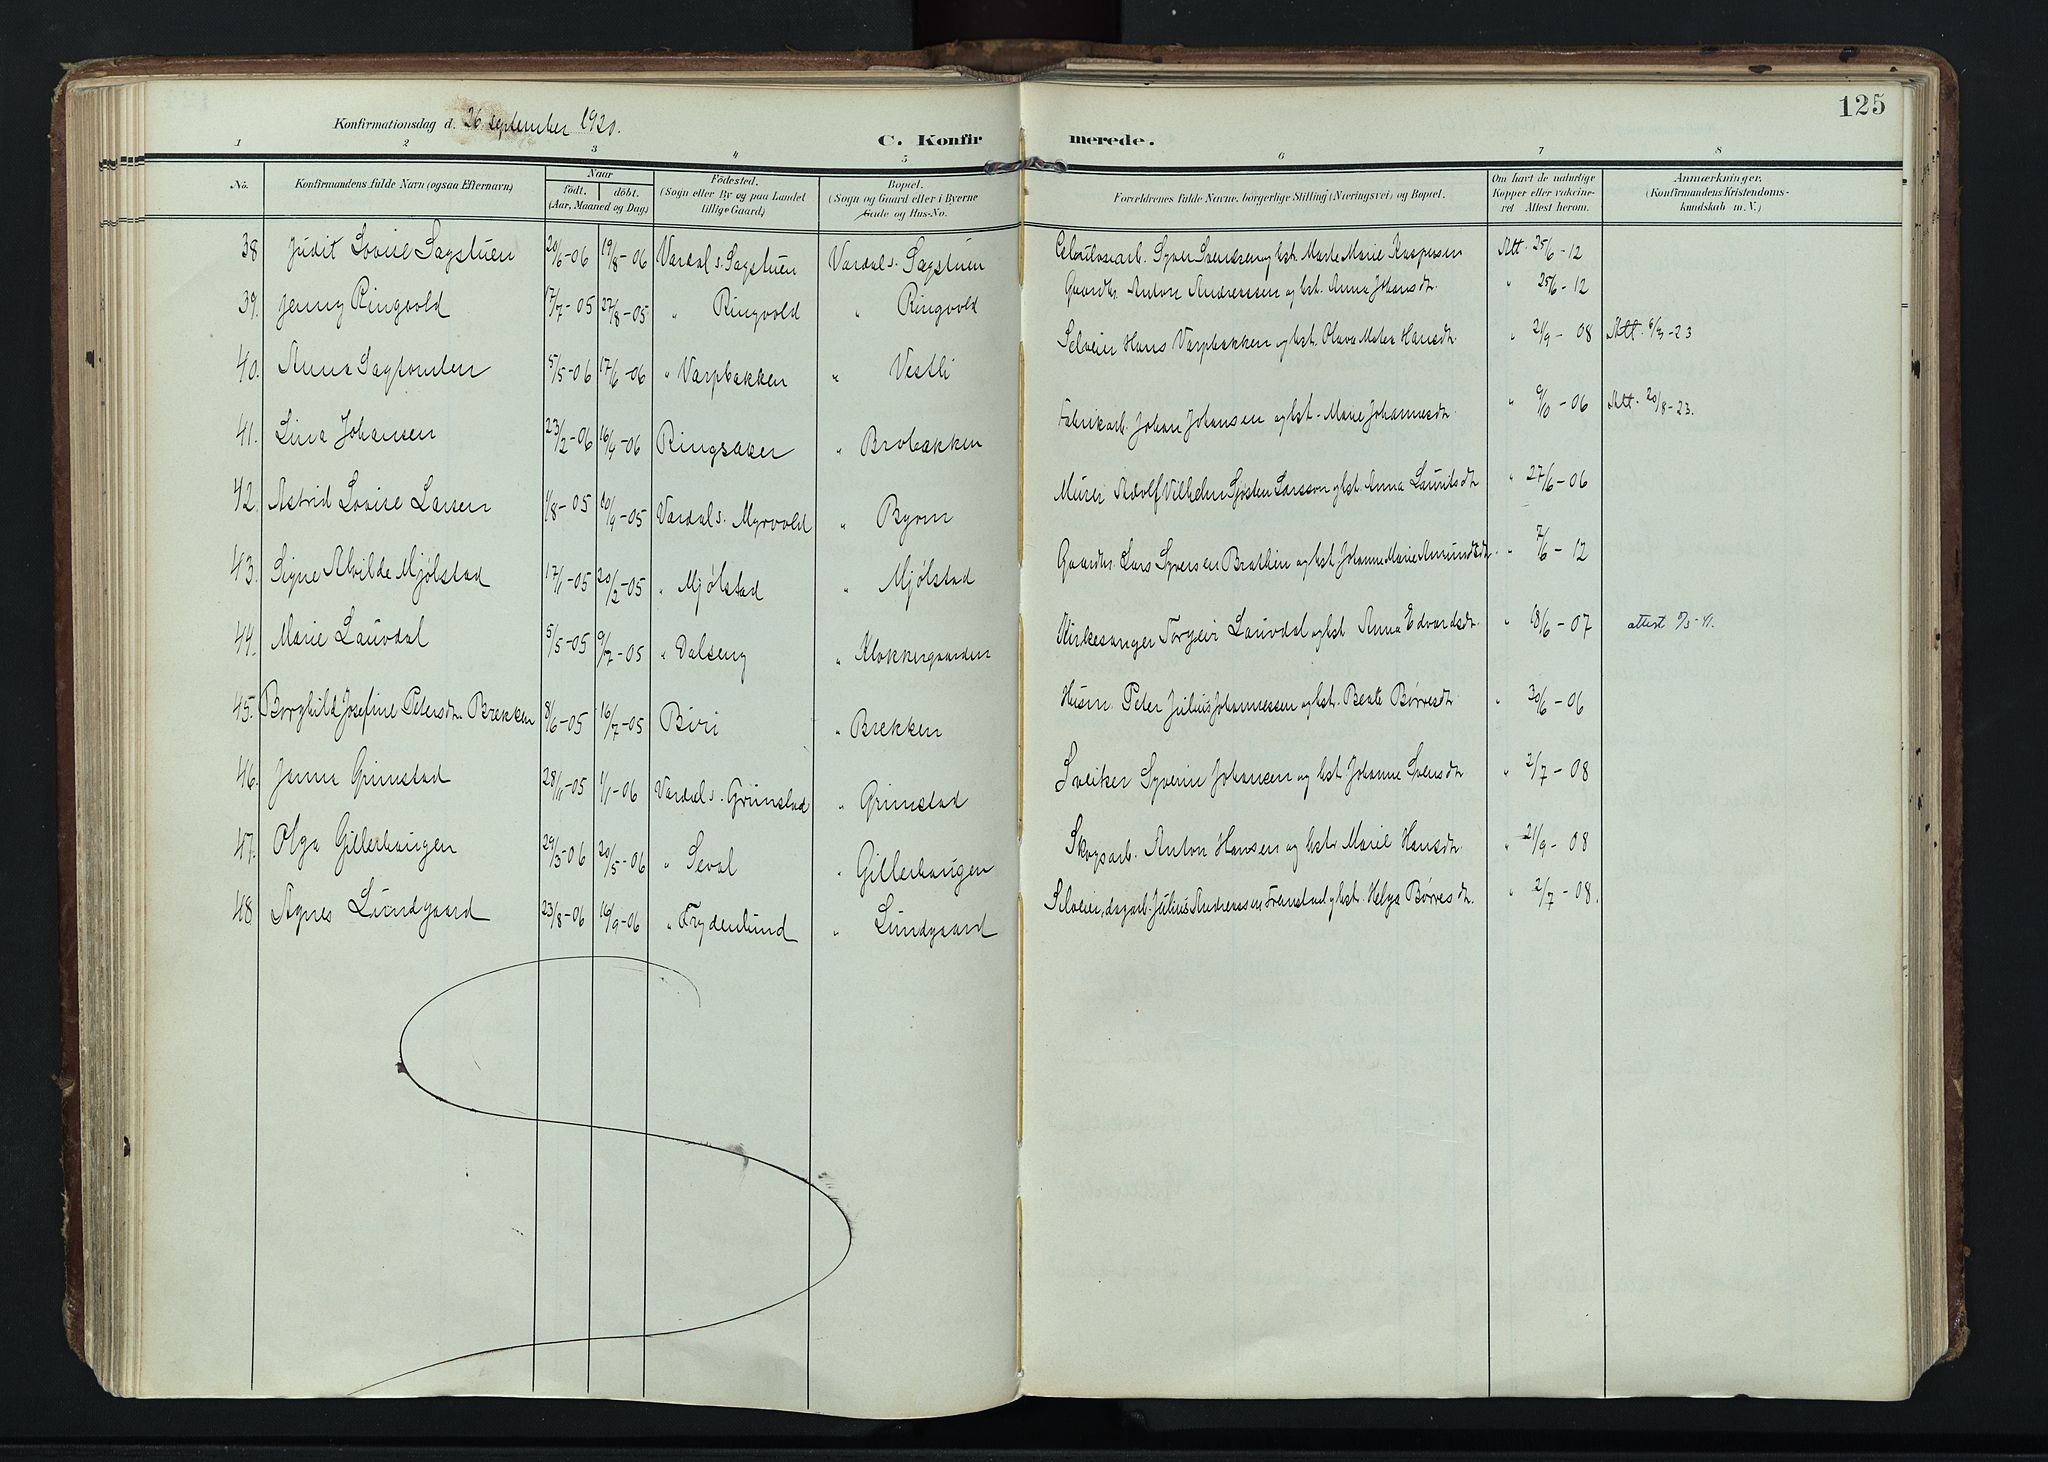 125
Konfirmationsdag d. 26 september 1920.
C. Konfirmerede.
1 2 3 4 5 6 7 8
No.
Konfirmandens fulde Navn (ogsaa Efternavn)
Naar
födt. döbt.
(Aar, Maaned og Dag)
Födested.
(Sogn eller By og paa Landet
tillige Gaard)
Bopæl.
(Sogn og Gaard eller i Byerne
Gade og Hus-No.
Forældrenes fulde Navne, borgerlige Stilling (Næringsvei) og Bopæl.
Om havt de naturlige
Kopper eller vakcine-
ret Attest herom.
Anmærkninger.
(Konfirmandens Kristendoms-
kundskab m. V.)
38 Judit Lovise Sagstuen 20/6-06 19/8-06 Vardal s. Sagstuen Vardal s. Sagstuen Celulosearb. Syver Svendsen og hst. Marte Marie Kaspersen Att. 25/6-12
39. Jenny Ringvold 17/7-05 27/8-05 " Ringvold " Ringvold Gaardbr. Anton Andreassen og hst. Anna Johansdt. " 25/6-12
40. Anna Sagsonden 5/5-06 17/6-06 " Varpbakken " Vestli Selveier Hans Varpbakken og hst. Olava Hansdt. " 21/9-08 Att. 6/3-23
41. Lina Johansen 23/2-06 16/4-06 Ringsaker " Brobakken Fabrikarb. Johan Johansen og hst. Marie Johannesdt. " 9/10-06 Att. 20/8-23.
42. Astrid Lovise Larsen 1/8-05 10/9-05 Vardal s. Myrvold " Byom Murer Adolf Vilhelm Larsson og hst. Anna Lauritsdt. " 27/6-06
43. Signe Alvilde Mjølstad 17/1-05 20/2-05 " Mjølstad " Mjølstad Gaardbr. Lars Syversen Brathen og hst. Johanne Marie Amundsdt. " 7/6-12
44. Marie Lauvdal 5/5-05 9/7-05 " Dalseng " Klokkergaarden Kirkesanger Torgeir Lauvdal og hst. Anna Edvardsdt. " 18/6-07 attest 9/5-41.
45. Borghild Josefine Petersdt. Brekken 8/6-05 16/7-05 Biri " Brekken Husm. Peter Julius Johannessen og hst. Beate Børresdt. " 30/6-06
46. Janna Grimstad 28/11-05 1/1-06 Vardal s. Grimstad " Grimstad Syverin Johansen og hst. Johanne Syversdt. " 2/7-08
47. Olga Gillerhaugen 29/3-06 20/5-06 " Seval " Gillerhaugen Skogsarb. Anton Hansen og hst. Marie Hansdt. " 21/9-08
48. Agnes Lundgaard 23/8-06 16/9-06 " Frydenlund " Lundgaard Selveier, dagarb. Julius Andreassen og hst. Helga Børresdt. " 2/7-08.